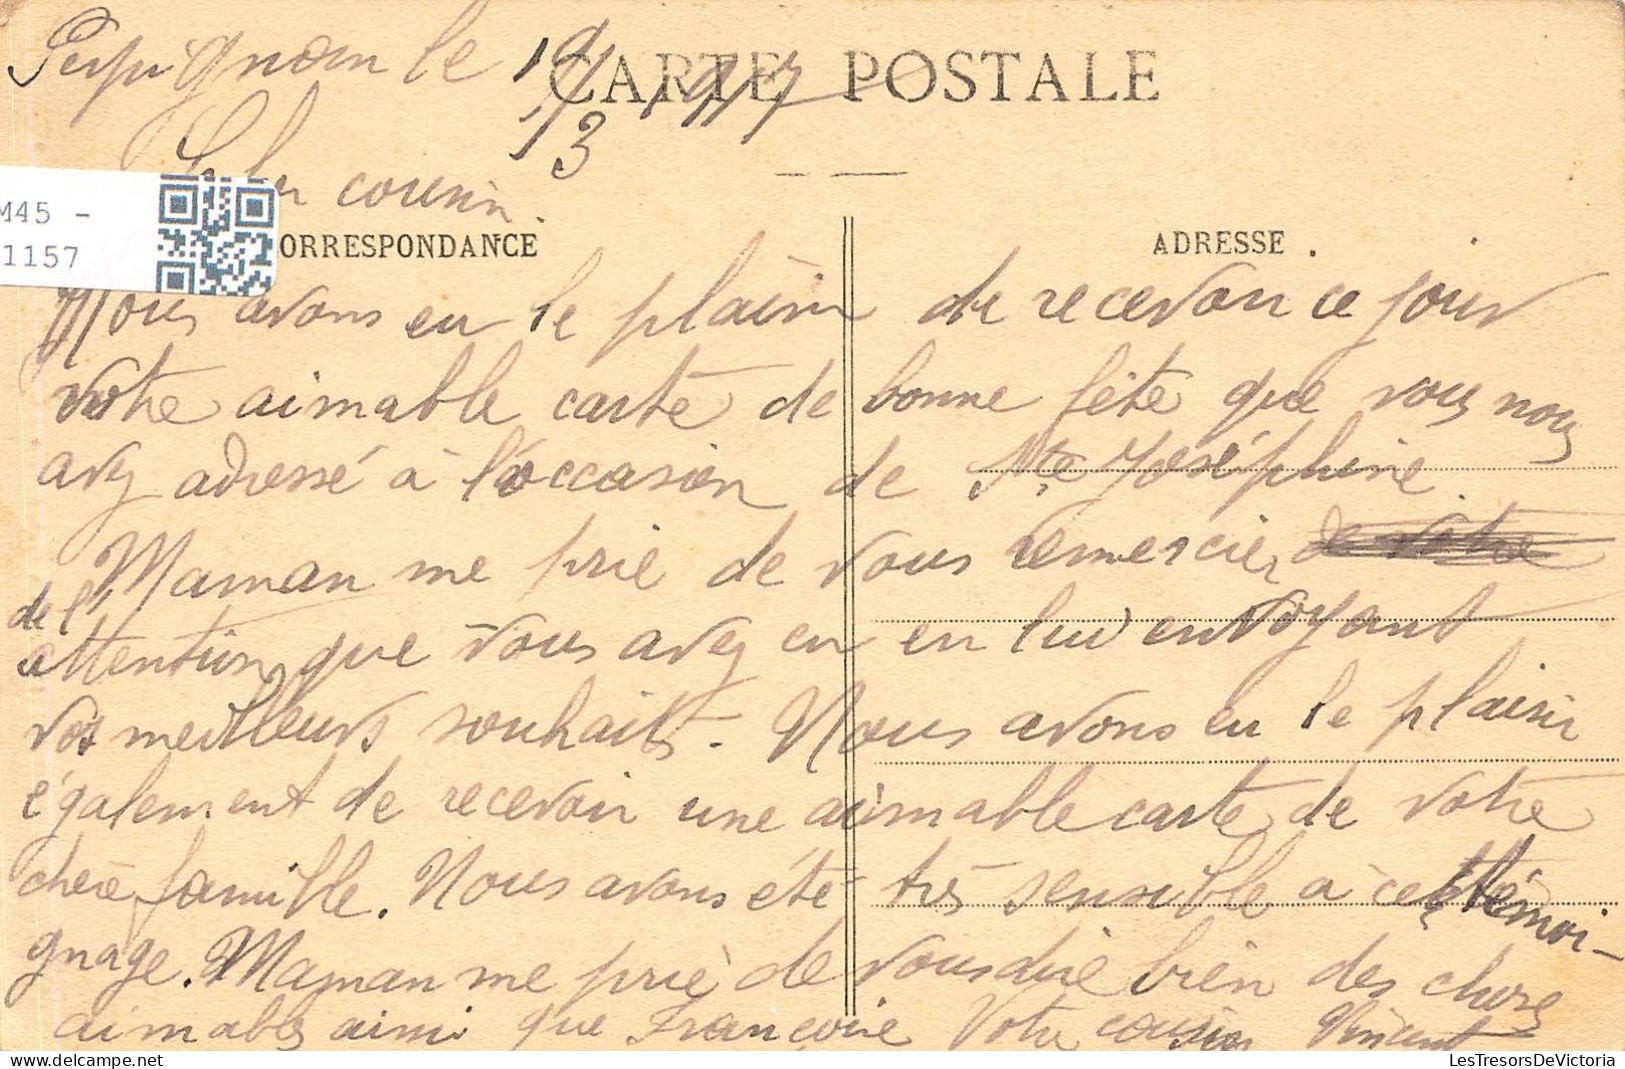 Perpignan le 19/3 1917
CARTE POSTALE
Cher cousin.
M45 -
1157
ORRESPONDANCE
ADRESSE .
Nous avons eu le plaisir de recevoir ce jour
votre aimable carte de bonne fête que vous nous
avez adressé à l'occasion de Ste Joséphine.
Maman me prie de vous remercier de votre
de l'
attention que vous avez eu en lui envoyant
vos meilleurs souhaits. Nous avons eu le plaisir
également de recevoir une aimable carte de votre
chère famille. Nous avons été très sensible à ce témoi-
gnage. Maman me prie de vous dire bien des choses
aimables ainsi que Françoise Votre cousin Vincent
LesTresorsDeVictoria.com